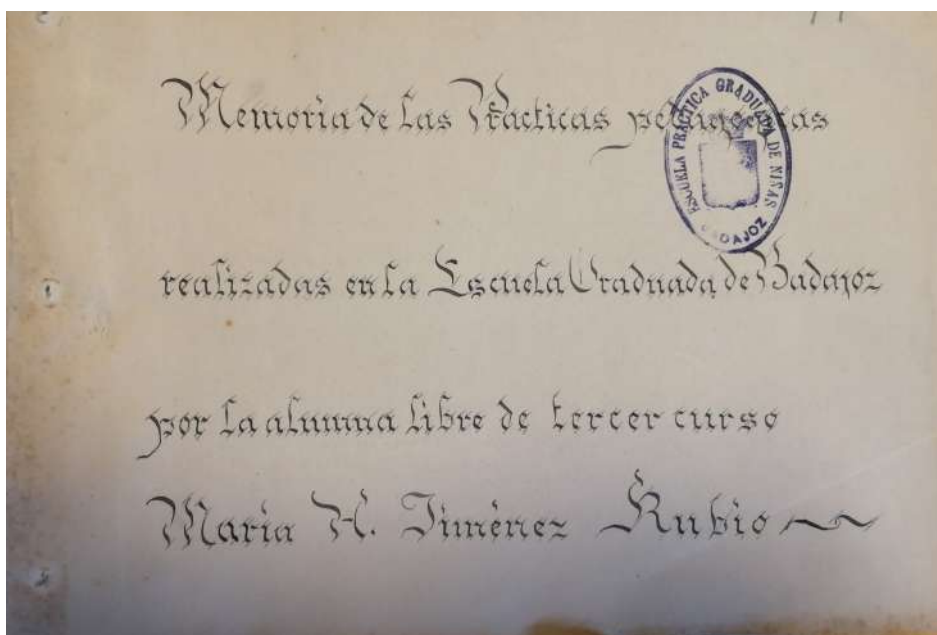 Memoria de las Practicas pedagogicas
ESCUELA PRÁCTICA GRADUADA DE NIÑAS
BADAJOZ
realizadas en la Escuela Graduada de Badajoz
por la alumna libre de tercer curso
María Jiménez Rubio